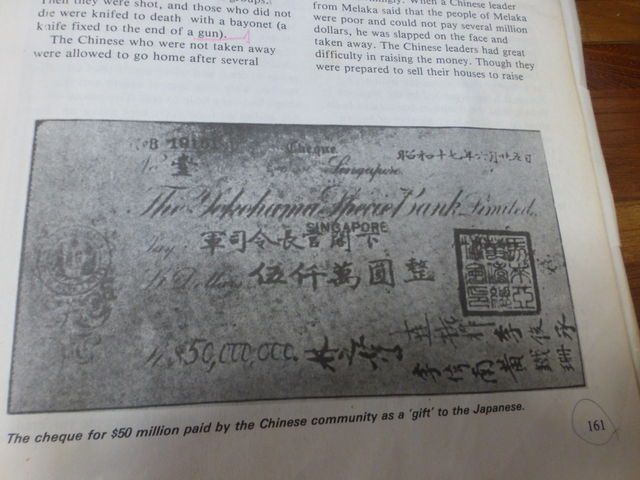 Then they were shot, and those who did not
die were knifed to death with a bayonet (a
knife fixed to the end of a gun).
The Chinese who were not taken away
were allowed to go home after several
When a Chinese leader
from Melaka said that the people of Melaka
were poor and could not pay several million
dollars, he was slapped on the face and
taken away. The Chinese leaders had great
difficulty in raising the money. Though they
were prepared to sell their houses to raise
Cheque
昭和十七年六月廿五日
No. 壹
Singapore
The Yokohama Specie Bank Limited.
SINGAPORE
Pay 軍司令長官閣下
Dollars 伍仟萬圓整
$50,000,000.
The cheque for $50 million paid by the Chinese community as a 'gift' to the Japanese.
161